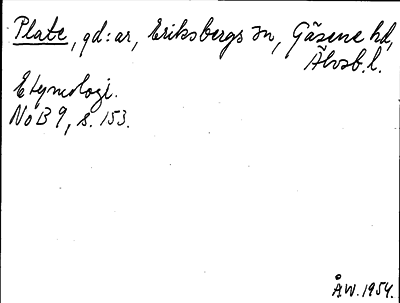 Plate, gd:ar, Eriksbergs sn, Gäsene hd,
Älvsb. l.
Etymologi.
NoB 9, s. 153.
Å.W. 1954.